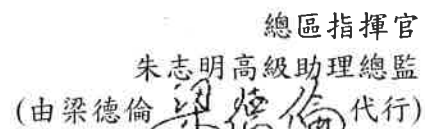 總區指揮官
朱志明高級助理總監
(由梁德倫 梁德倫 代行)